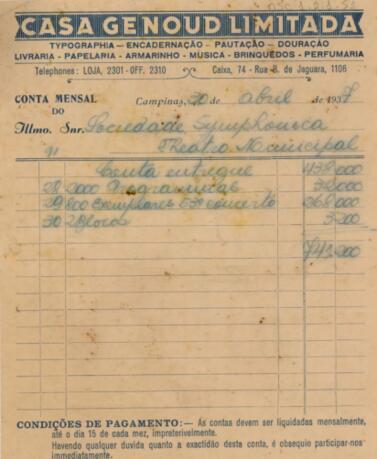 CASA GENOUD LIMITADA
TYPOGRAPHIA — ENCADERNAÇÃO — PAUTAÇÃO — DOURAÇÃO
LIVRARIA - PAPELARIA - ARMARINHO - MUSICA - BRINQUEDOS - PERFUMARIA
Telephones: LOJA, 2301 - OFF. 2310 Caixa, 74 - Rua B. de Jaguara, 1106
CONTA MENSAL Campinas, 30 de abril de 1937
DO
Illmo. Snr. Sociedade Symphonica
Theatro Municipal
Conta entregue 438.000
28 2000 Programmas
29 800 Exemplares 53º concerto 268.000
30 2 Blocos 3.200
CONDIÇÕES DE PAGAMENTO:— As contas devem ser liquidadas mensalmente,
até o dia 15 de cada mez, impreterivelmente.
Havendo qualquer duvida quanto a exactidão desta conta, é obsequio participar-nos
immediatamente.